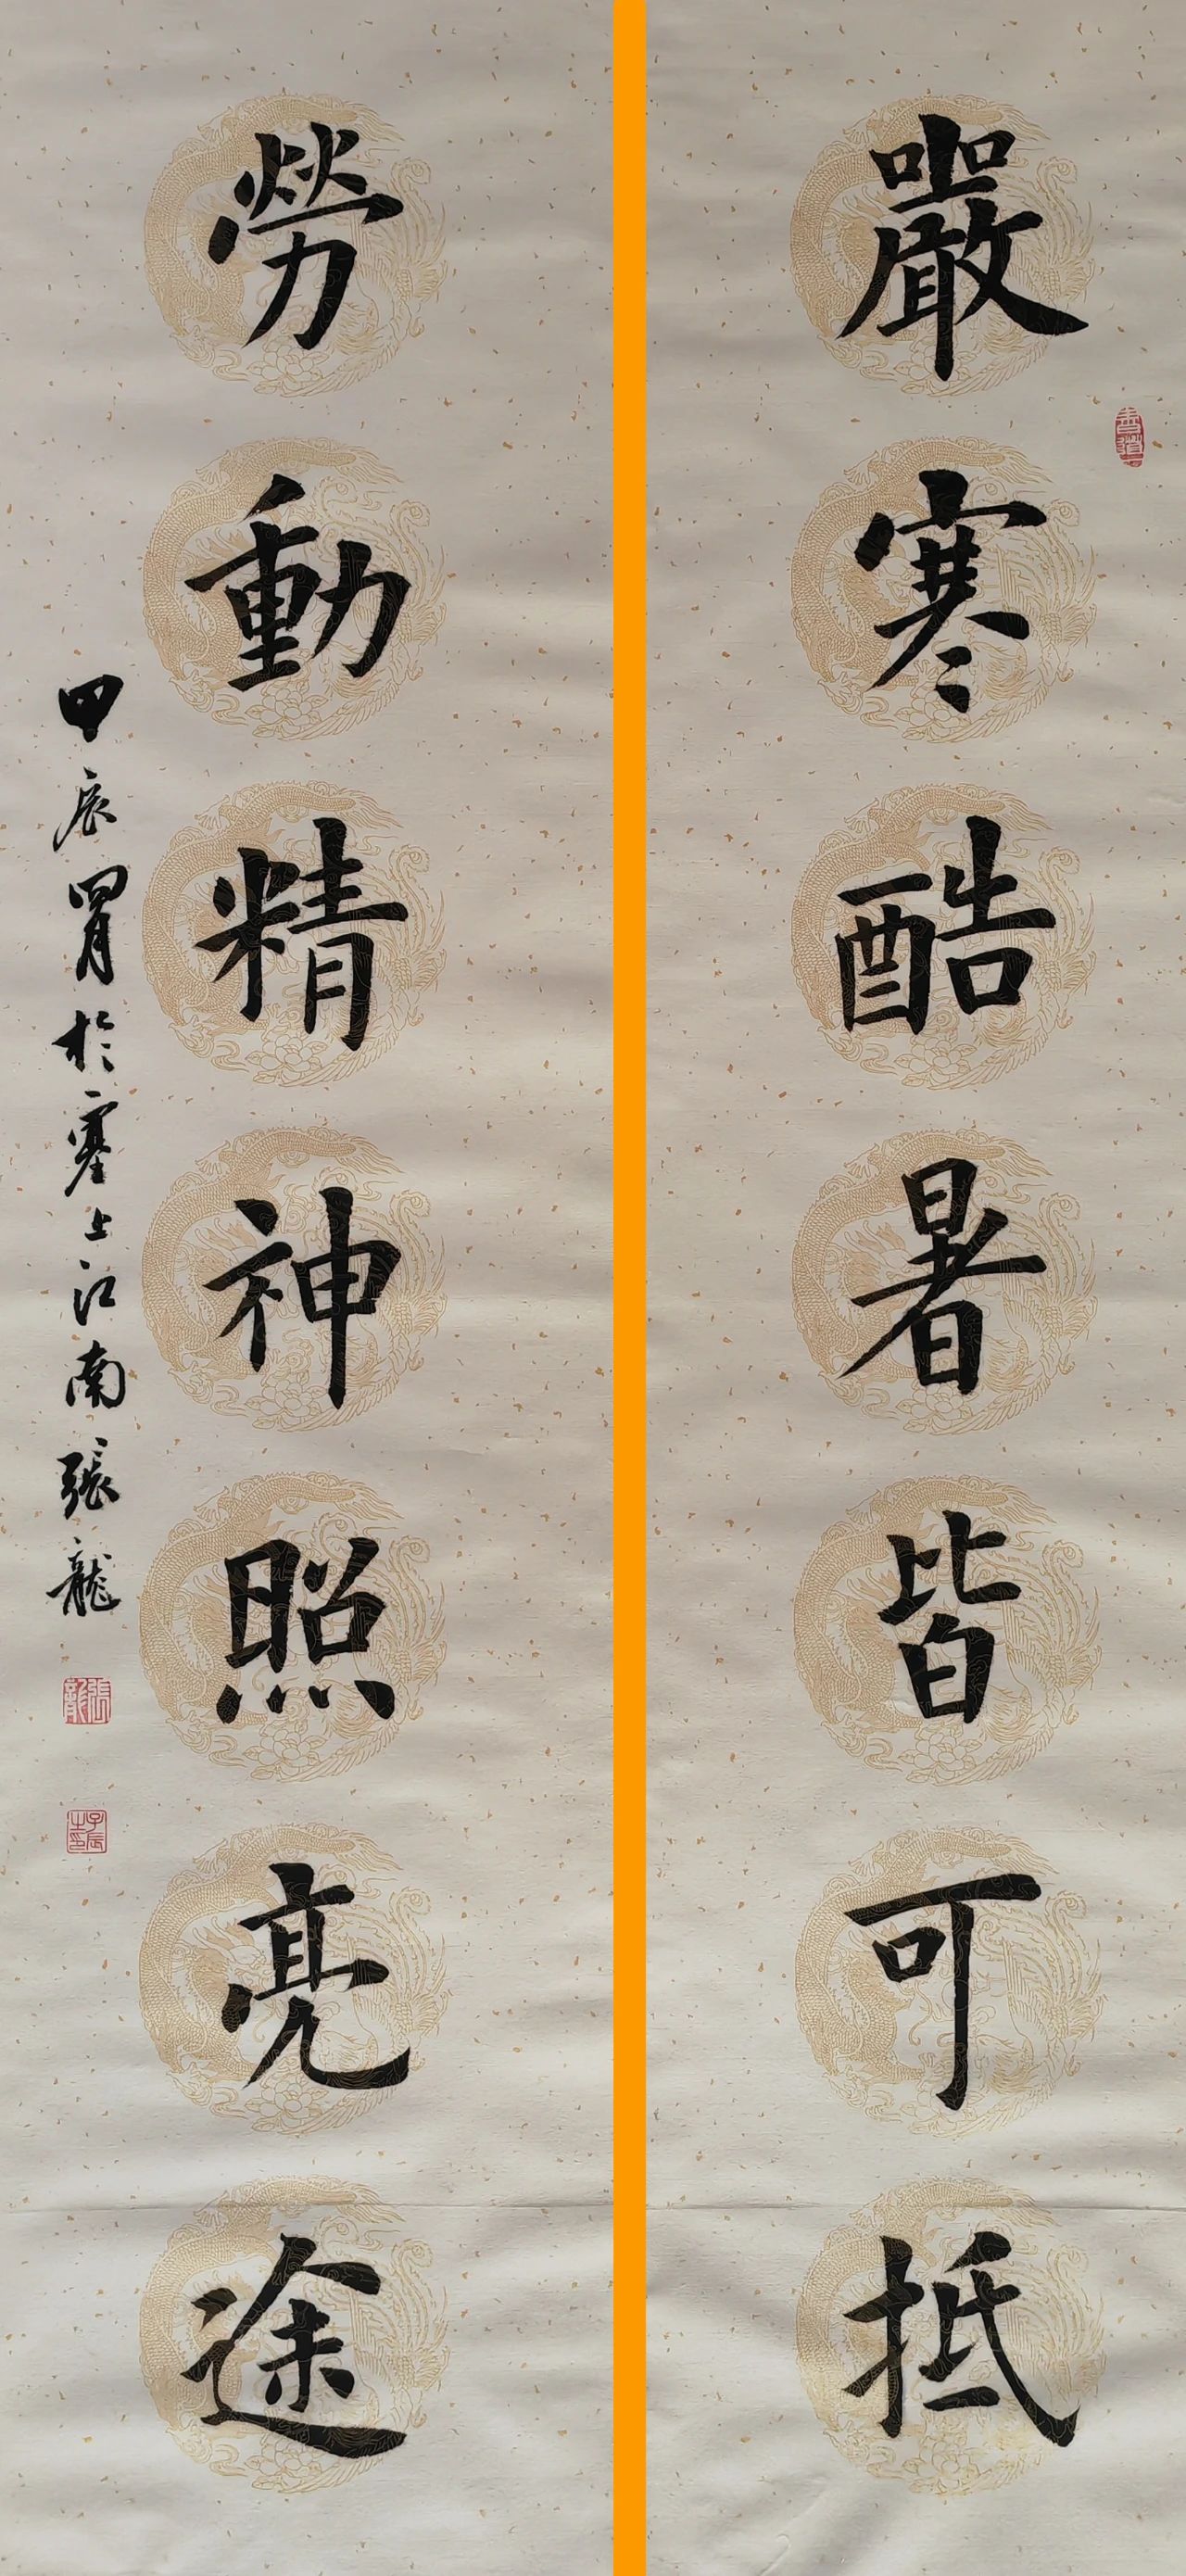 嚴寒酷暑皆可抵
勞動精神照亮途
甲辰四月於塞上江南張龍
張龍